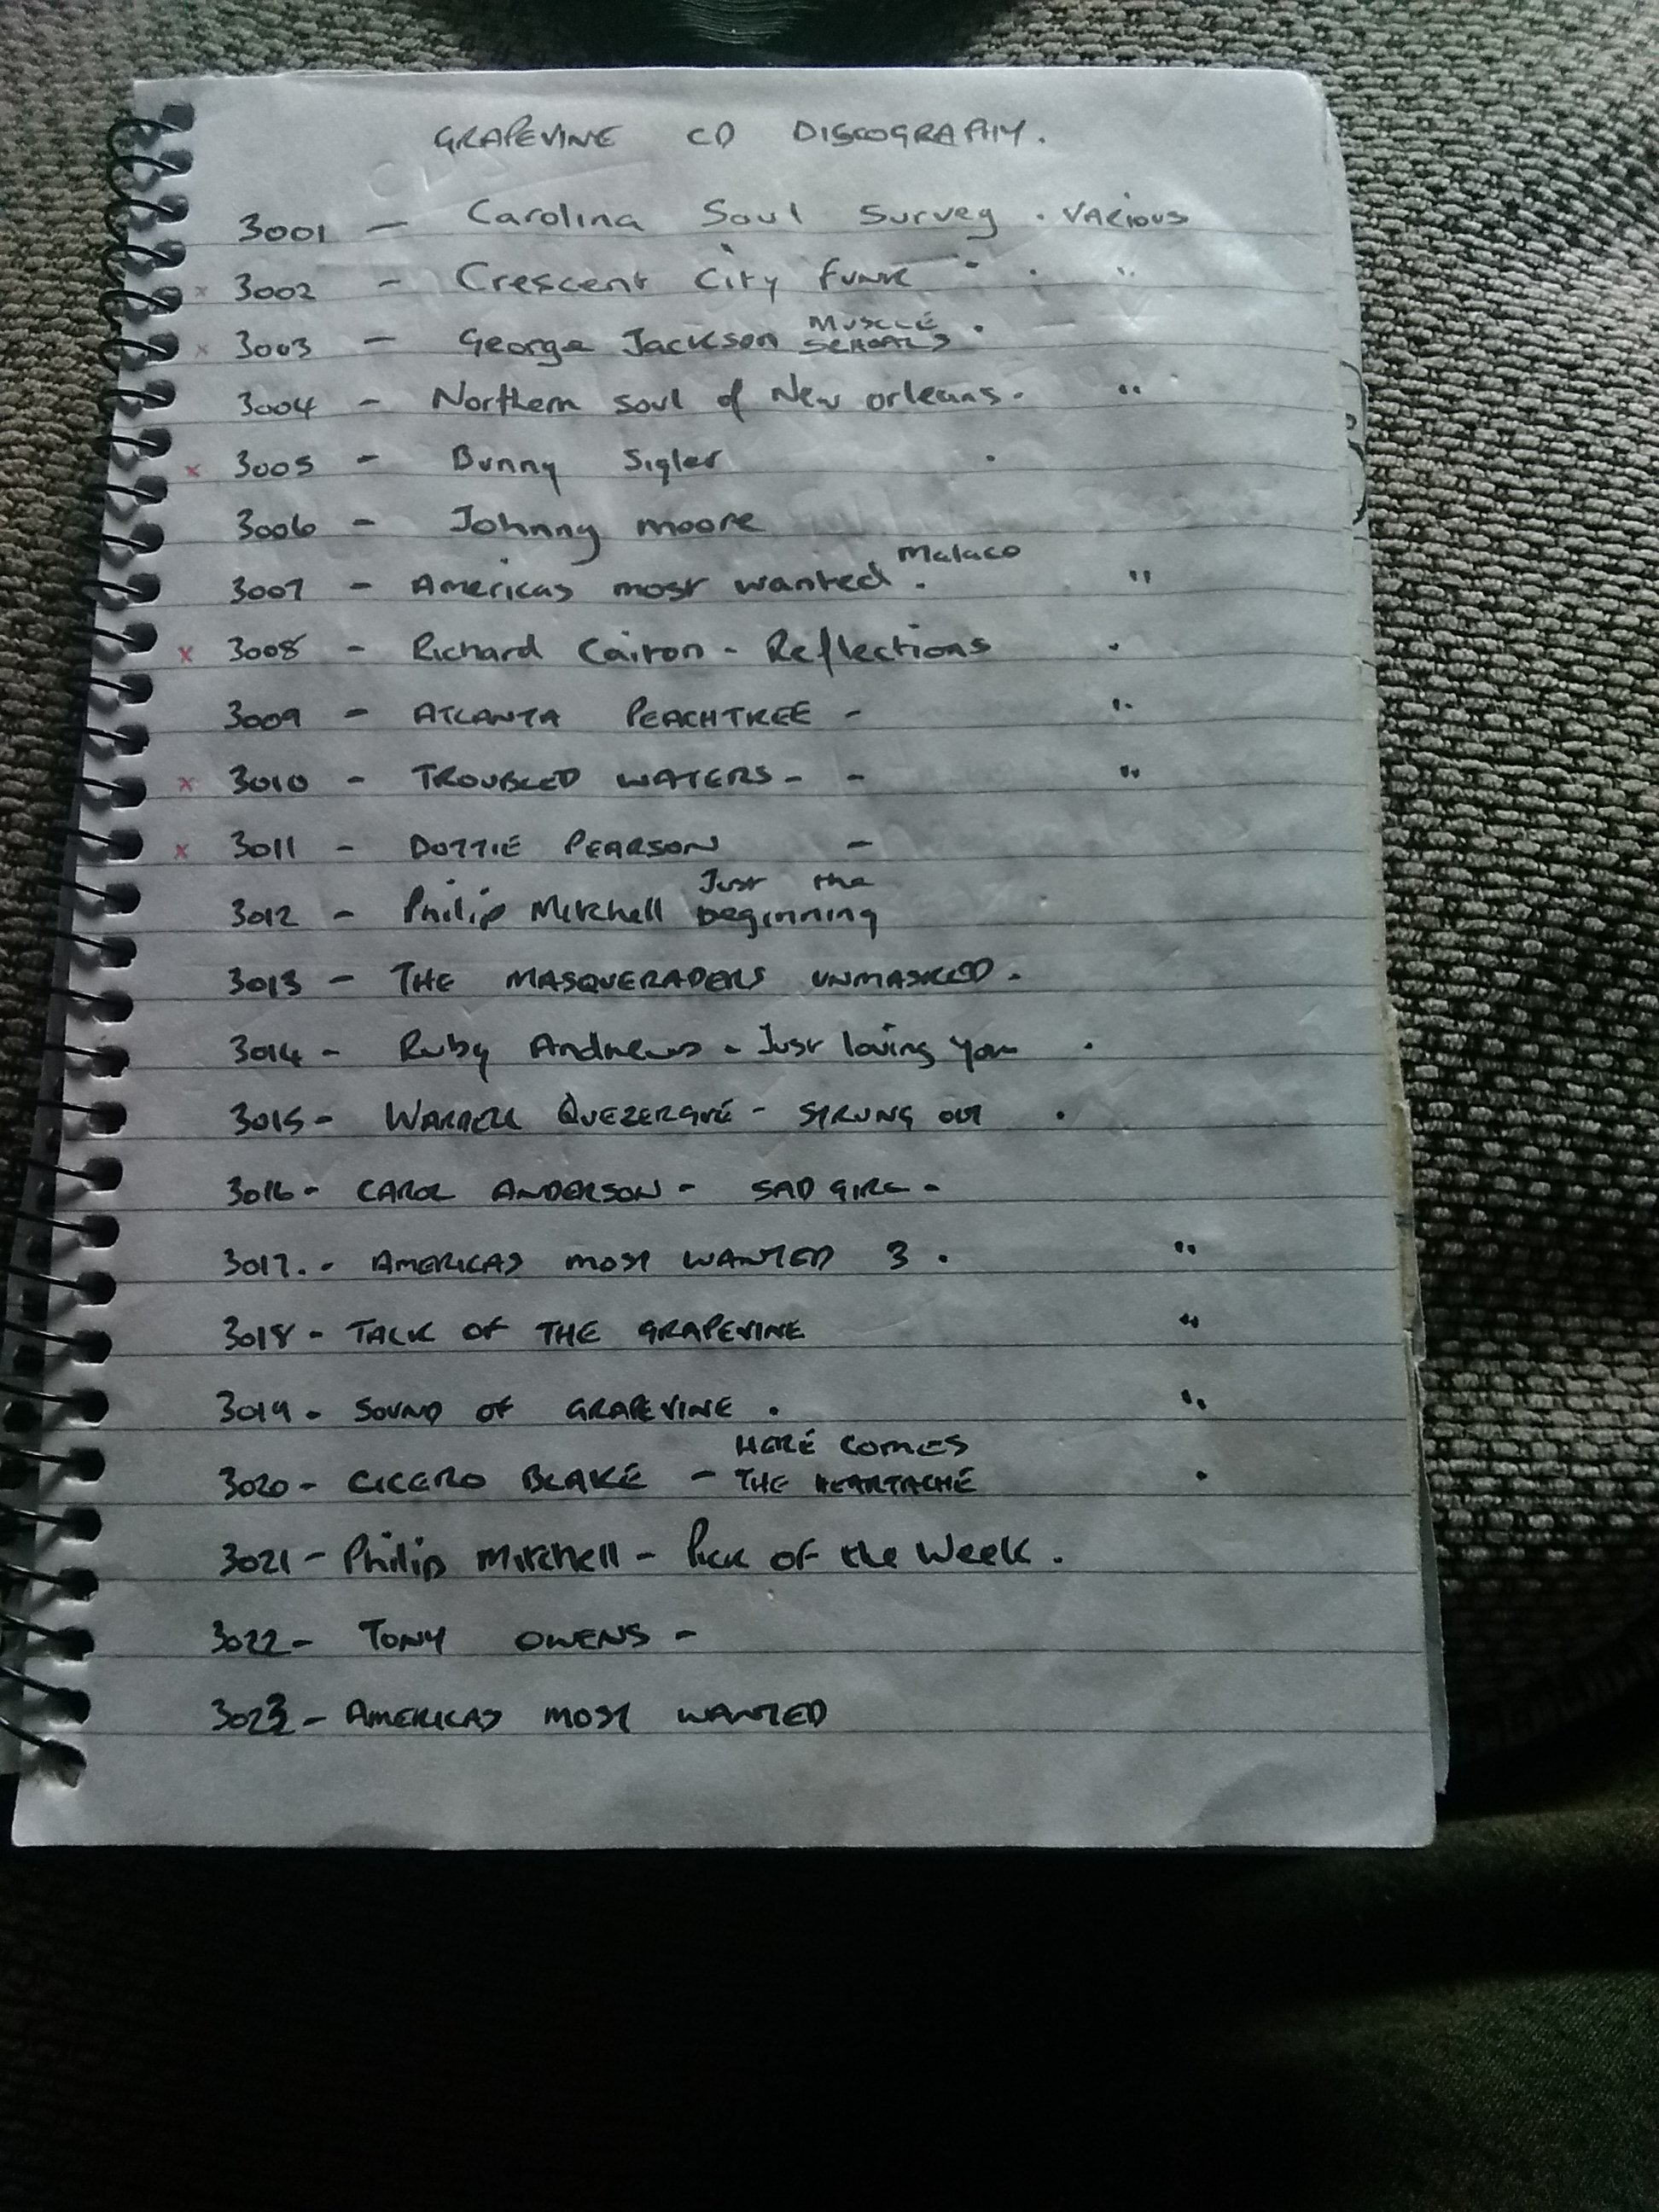 GRAPEVINE CD DISCOGRAPHY.
3001 — Carolina Soul Survey . VARIOUS
x 3002 - Crescent City FUNK - . "
x 3003 - George Jackson MUSCLE SCHOALS .
3004 - Northern soul of New orleans. "
x 3005 - Bunny Sigler .
3006 - Johnny moore
3007 - Americas most wanted Malaco . "
x 3008 - Richard Caiton - Reflections .
3009 - ATLANTA PEACHTREE - "
x 3010 - TROUBLED WATERS - - "
x 3011 - DOTTIE PEARSON -
3012 - Philip Mitchell Just the beginning
3013 - THE MASQUERADERS UNMASKED -
3014 - Ruby Andrews - Just loving you .
3015 - WARDELL QUEZERGUÉ - STRUNG OUT .
3016 - CAROL ANDERSON - SAD GIRL -
3017. - AMERICAS MOST WANTED 3 . "
3018 - TALK OF THE GRAPEVINE "
3019 - SOUND OF GRAPEVINE . "
3020 - CICERO BLAKE - HERE COMES THE HEARTACHE .
3021 - Philip Mitchell - Pick of the Week .
3022 - TONY OWENS -
3023 - AMERICAS MOST WANTED